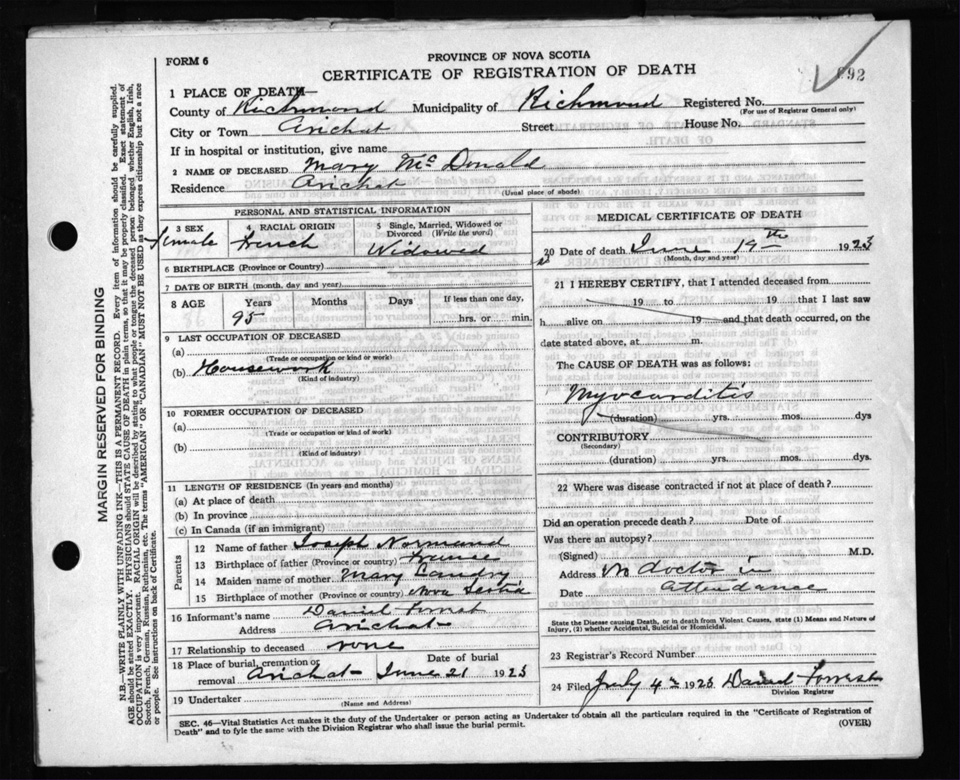 FORM 6
PROVINCE OF NOVA SCOTIA
CERTIFICATE OF REGISTRATION OF DEATH
692
1 PLACE OF DEATH
County of Richmond Municipality of Richmond Registered No.
(For use of Registrar General only)
City or Town Arichat Street House No.
If in hospital or institution, give name
2 NAME OF DECEASED Mary McDonald
Residence Arichat
(Usual place of abode)
PERSONAL AND STATISTICAL INFORMATION
3 SEX 4 RACIAL ORIGIN 5 Single, Married, Widowed or Divorced (Write the word)
female French Widowed
6 BIRTHPLACE (Province or Country)
7 DATE OF BIRTH (month, day and year)
8 AGE Years Months Days If less than one day,
95 hrs. or min.
9 LAST OCCUPATION OF DECEASED
(a)
(Trade or occupation or kind or work)
(b) Housework
(Kind of industry)
10 FORMER OCCUPATION OF DECEASED
(a)
(Trade or occupation or kind of work)
(b)
(Kind of industry)
11 LENGTH OF RESIDENCE (In years and months)
(a) At place of death
(b) In province
(c) In Canada (if an immigrant)
Parents
12 Name of father Joseph Normand
13 Birthplace of father (Province or country) France
14 Maiden name of mother Mary Landry
15 Birthplace of mother (Province or country) Nova Scotia
16 Informant's name Daniel Forrest
Address Arichat
17 Relationship to deceased none
18 Place of burial, cremation or removal Arichat Date of burial June 21 1923
19 Undertaker
(Name and Address)
MEDICAL CERTIFICATE OF DEATH
20 Date of death June 19th 1923
(Month, day and year)
21 I HEREBY CERTIFY, that I attended deceased from
19 to 19 that I last saw
h alive on 19 and that death occurred, on the
date stated above, at m.
The CAUSE OF DEATH was as follows:
Myocarditis
(duration) yrs. mos. dys
CONTRIBUTORY
(Secondary)
(duration) yrs. mos. dys.
22 Where was disease contracted if not at place of death?
Did an operation precede death? Date of
Was there an autopsy?
(Signed) M.D.
Address No doctor in
Date attendance
State the Disease causing Death, or in death from Violent Causes, state (1) Means and Nature of
Injury, (2) whether Accidental, Suicidal or Homicidal.
23 Registrar's Record Number
24 Filed July 4th 1923 Daniel Forrest
Division Registrar
SEC. 46—Vital Statistics Act makes it the duty of the Undertaker or person acting as Undertaker to obtain all the particulars required in the "Certificate of Registration of
Death" and to fyle the same with the Division Registrar who shall issue the burial permit.
(OVER)
MARGIN RESERVED FOR BINDING
N.B.—WRITE PLAINLY WITH UNFADING INK—THIS IS A PERMANENT RECORD. Every item of information should be carefully supplied.
AGE should be stated EXACTLY. PHYSICIANS should STATE CAUSE OF DEATH in plain terms, so that it may be properly classified. Exact statement of
OCCUPATION is very important. RACIAL ORIGIN will be described by stating to what people or tongue the deceased person belonged whether English, Irish,
Scotch, French, German, Russian, Ruthenian, etc. The terms "AMERICAN" OR "CANADIAN" MUST NOT BE USED as they express citizenship but not a race
or people. See instructions on back of Certificate.